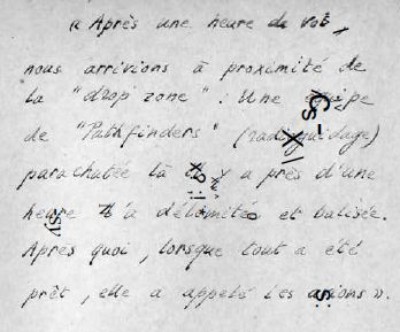 « Après une heure de vol,
nous arrivions à proximité de
la "drop zone" : Une équipe
de "Pathfinders" (radioguidage)
parachutée là il y a près d'une
heure l'a délimitée et balisée.
Après quoi, lorsque tout a été
prêt, elle a appelé les avions ».